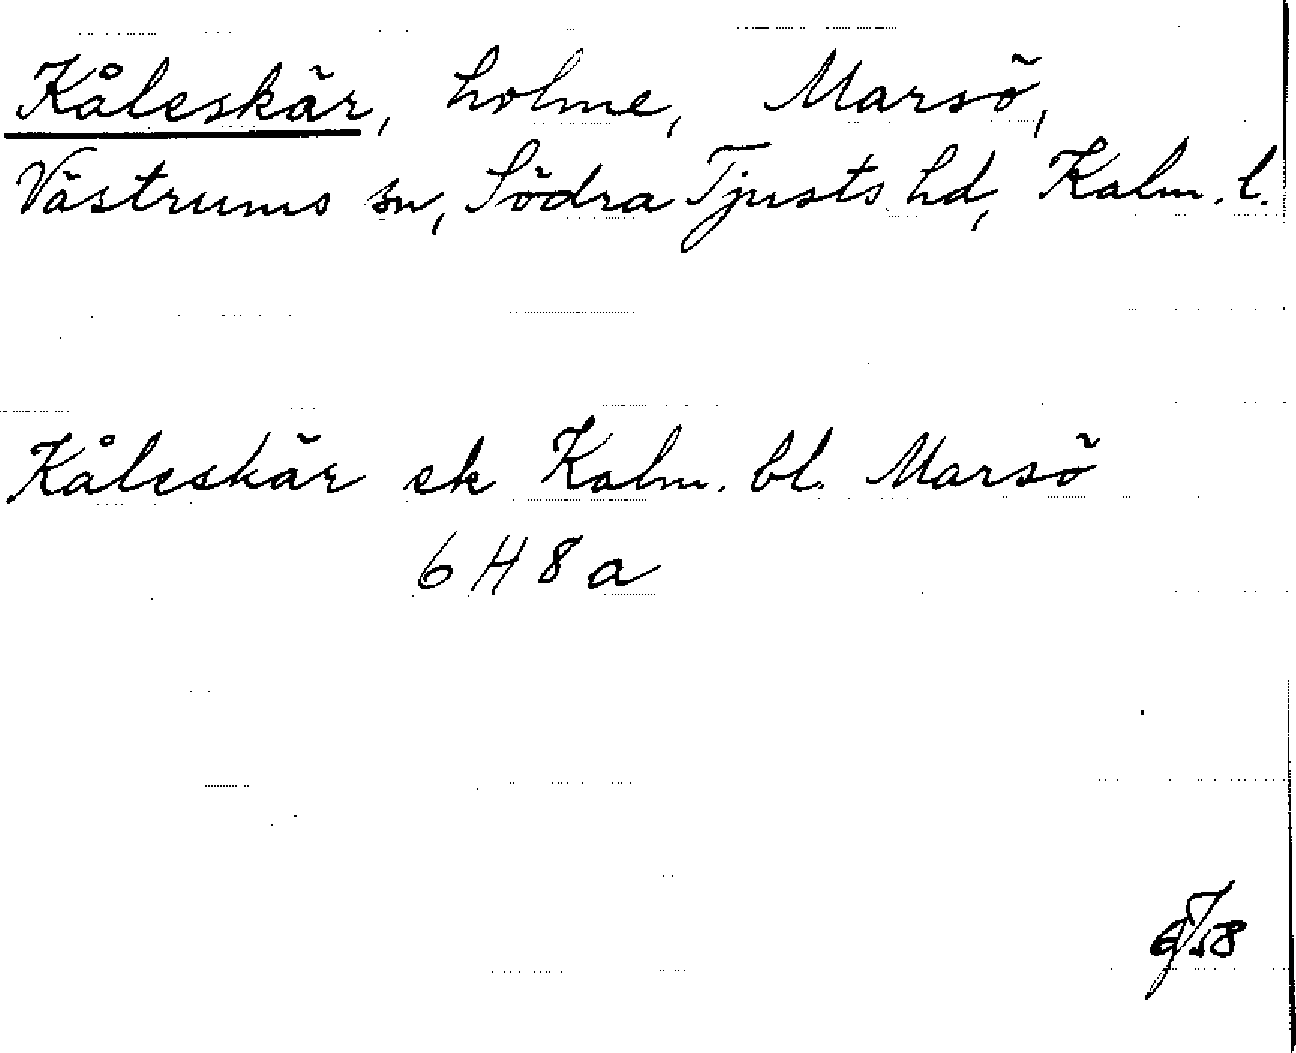 Kåleskär, holme, Marsö,
Västrums sn, Södra Tjusts hd, Kalm. l.
Kåleskär ek Kalm. bl. Marsö
6 H 8 a